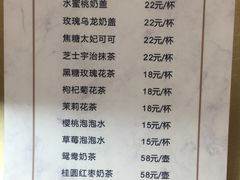 水蜜桃奶盖 22元/杯
玫瑰乌龙奶盖 22元/杯
焦糖太妃可可 22元/杯
芝士宇治抹茶 22元/杯
黑糖玫瑰花茶 18元/杯
枸杞菊花茶 18元/杯
茉莉花茶 18元/杯
樱桃泡泡水 15元/杯
草莓泡泡水 15元/杯
鸳鸯奶茶 58元/壶
桂圆红枣奶茶 58元/壶